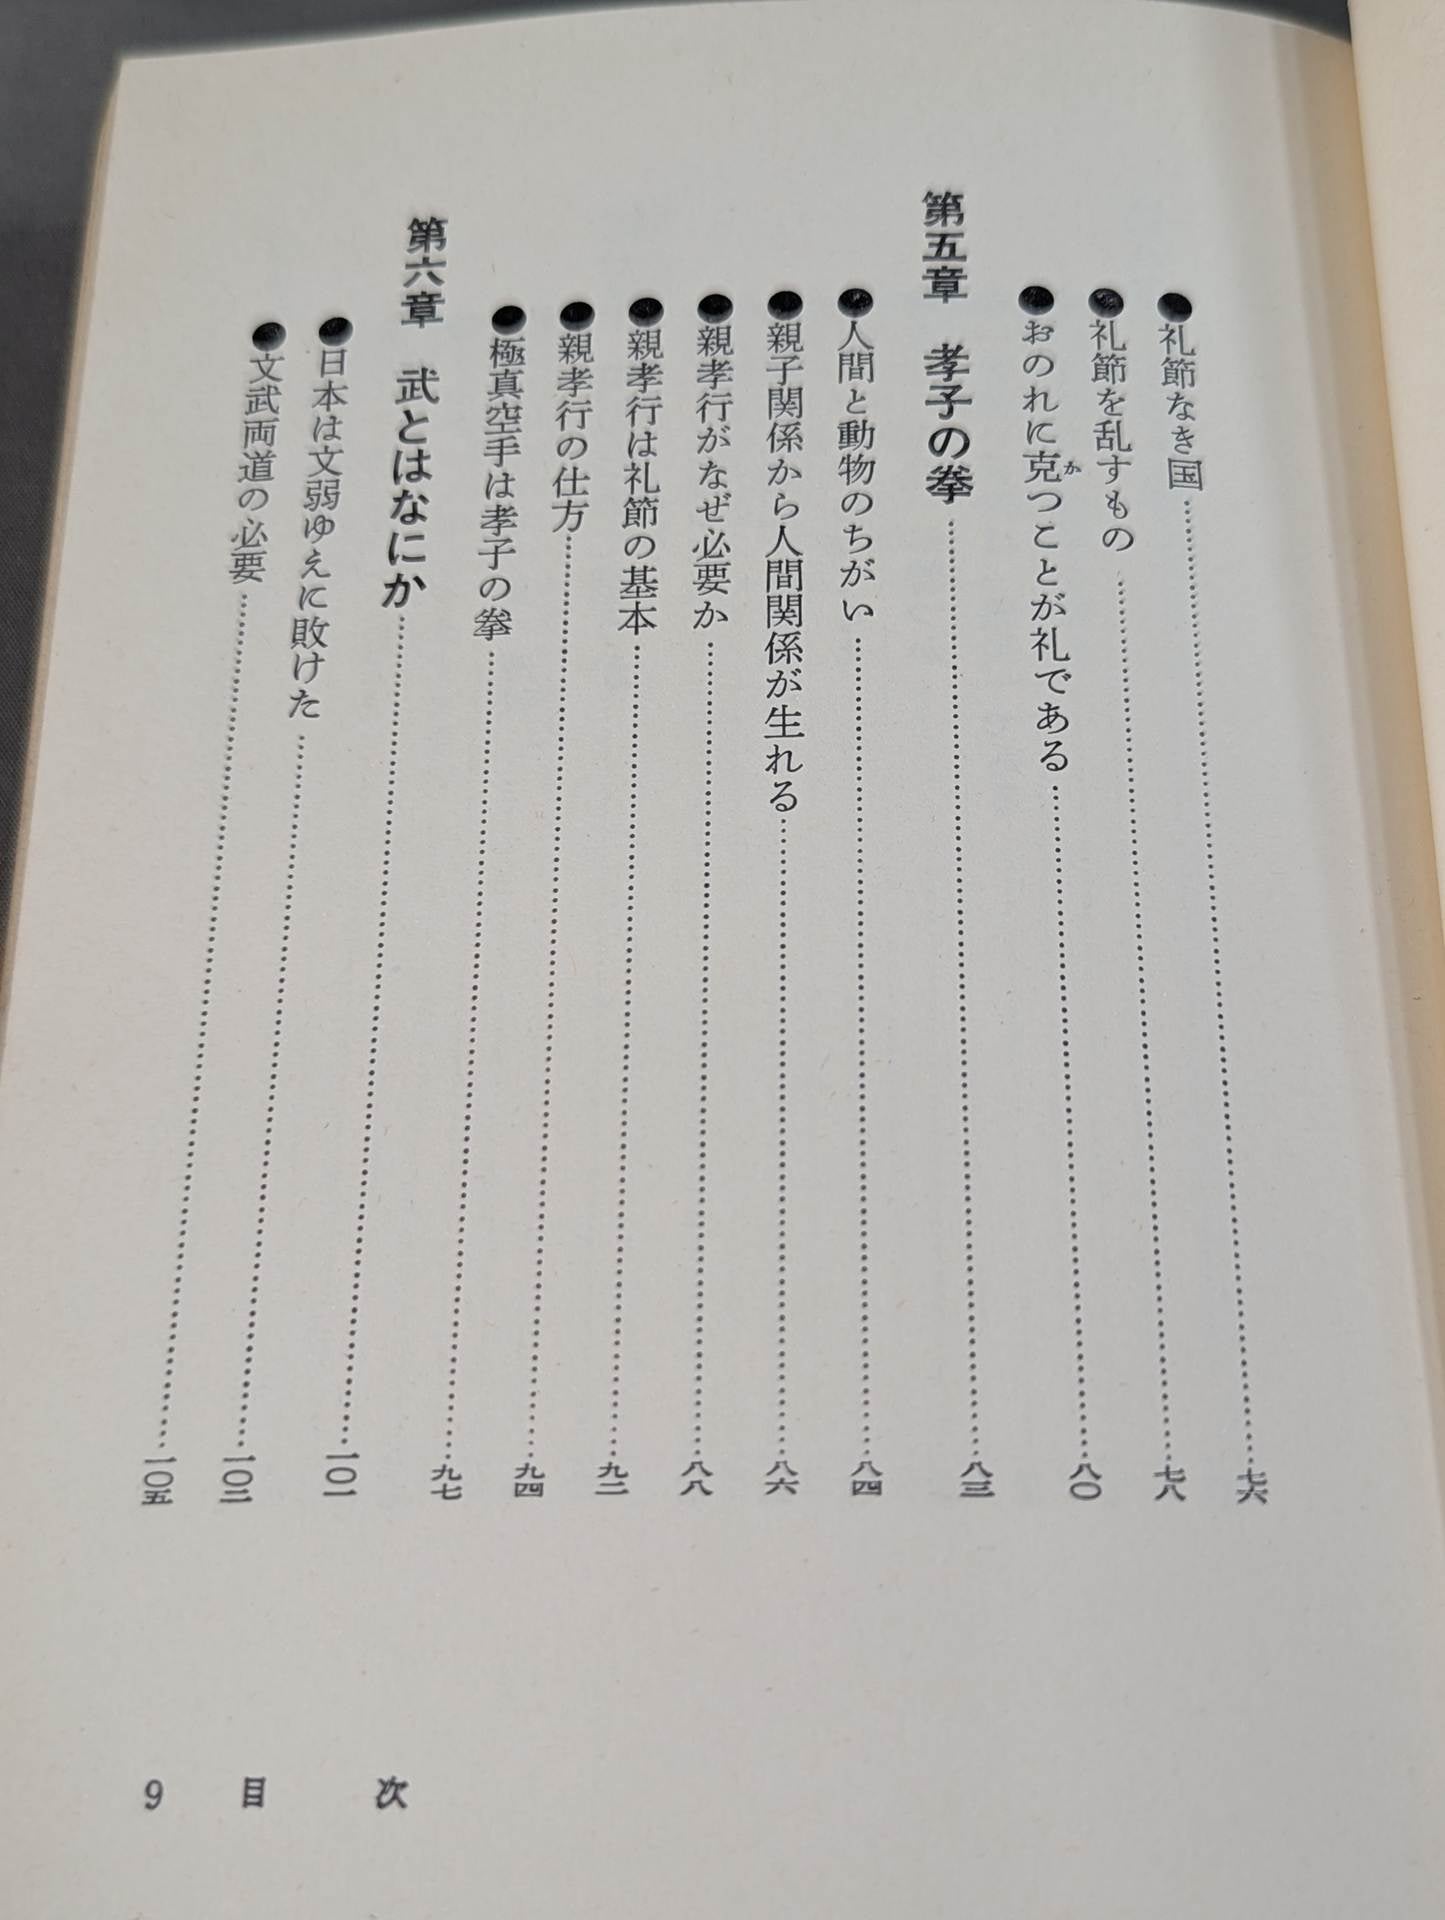 ●礼節なき国……………七六
●礼節を乱すもの……………七八
●おのれに克つことが礼である……………八〇
か
第五章　孝子の拳……………八三
●人間と動物のちがい……………八四
●親子関係から人間関係が生れる……………八六
●親孝行がなぜ必要か……………八八
●親孝行は礼節の基本……………九二
●親孝行の仕方……………九四
●極真空手は孝子の拳……………九七
第六章　武とはなにか……………一〇一
●日本は文弱ゆえに敗けた……………一〇二
●文武両道の必要……………一〇五
9　目　次